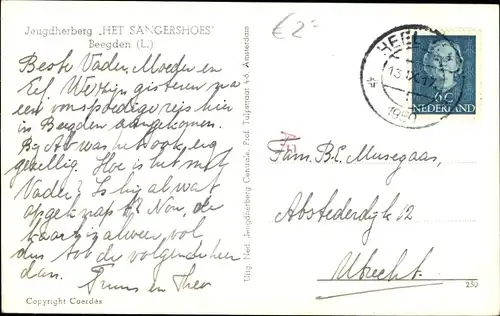 Jeugdherberg „HET SANGERSHOES”
Beegden (L.)
Beste Vader, Moeder en
Eef. We zijn gisteren na
een voorspoedige reis hier
in Beegden aangekomen.
Bij Ab was het ook erg
gezellig. Hoe is het met
Vader? Is hij al wat
opgeknapt? Nou, de
kaart is alweer vol
dus tot de volgende keer
dan. Truus en Theo
Copyright Coerdès
Uitg. Ned. Jeugdherberg Centrale, Prof. Tulpstraat Amsterdam
€2
HEEL
13.IX.17
1950
6C
NEDERLAND
Fam. B.C. Musegaas,
Abstederdijk 12
Utrecht.
250